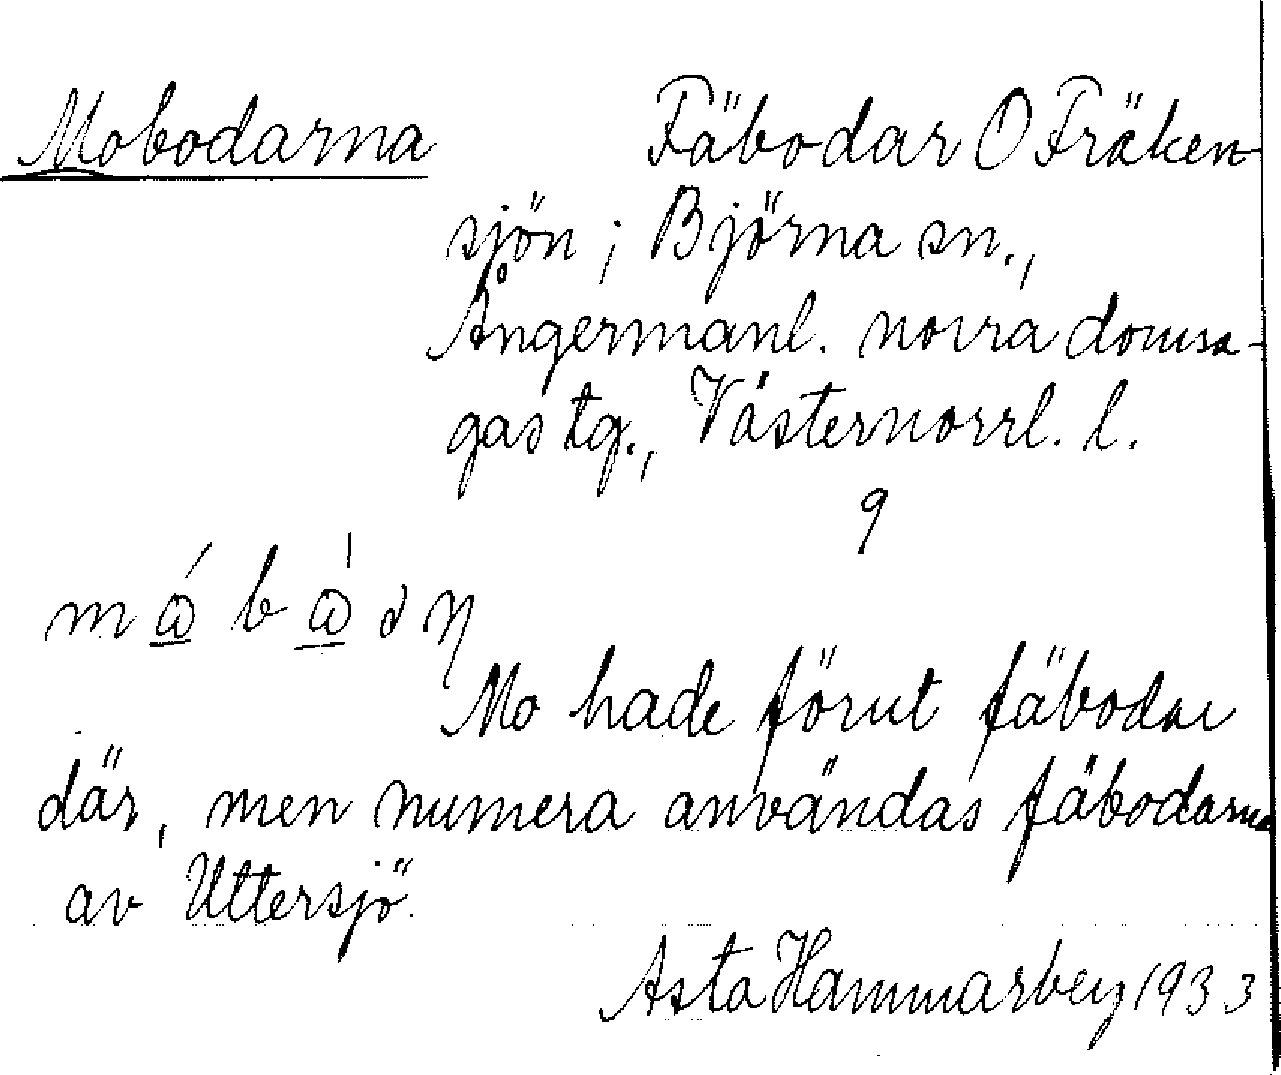 Mobodarna Fäbodar O Fräken-
sjön; Björna sn.,
Ångermanl. norra domsa-
gas tg., Västernorrl. l.
9
Mo hade förut fäbodar
där, men numera användas fäbodarna
av Uttersjö.
Asta Hammarberg 1933